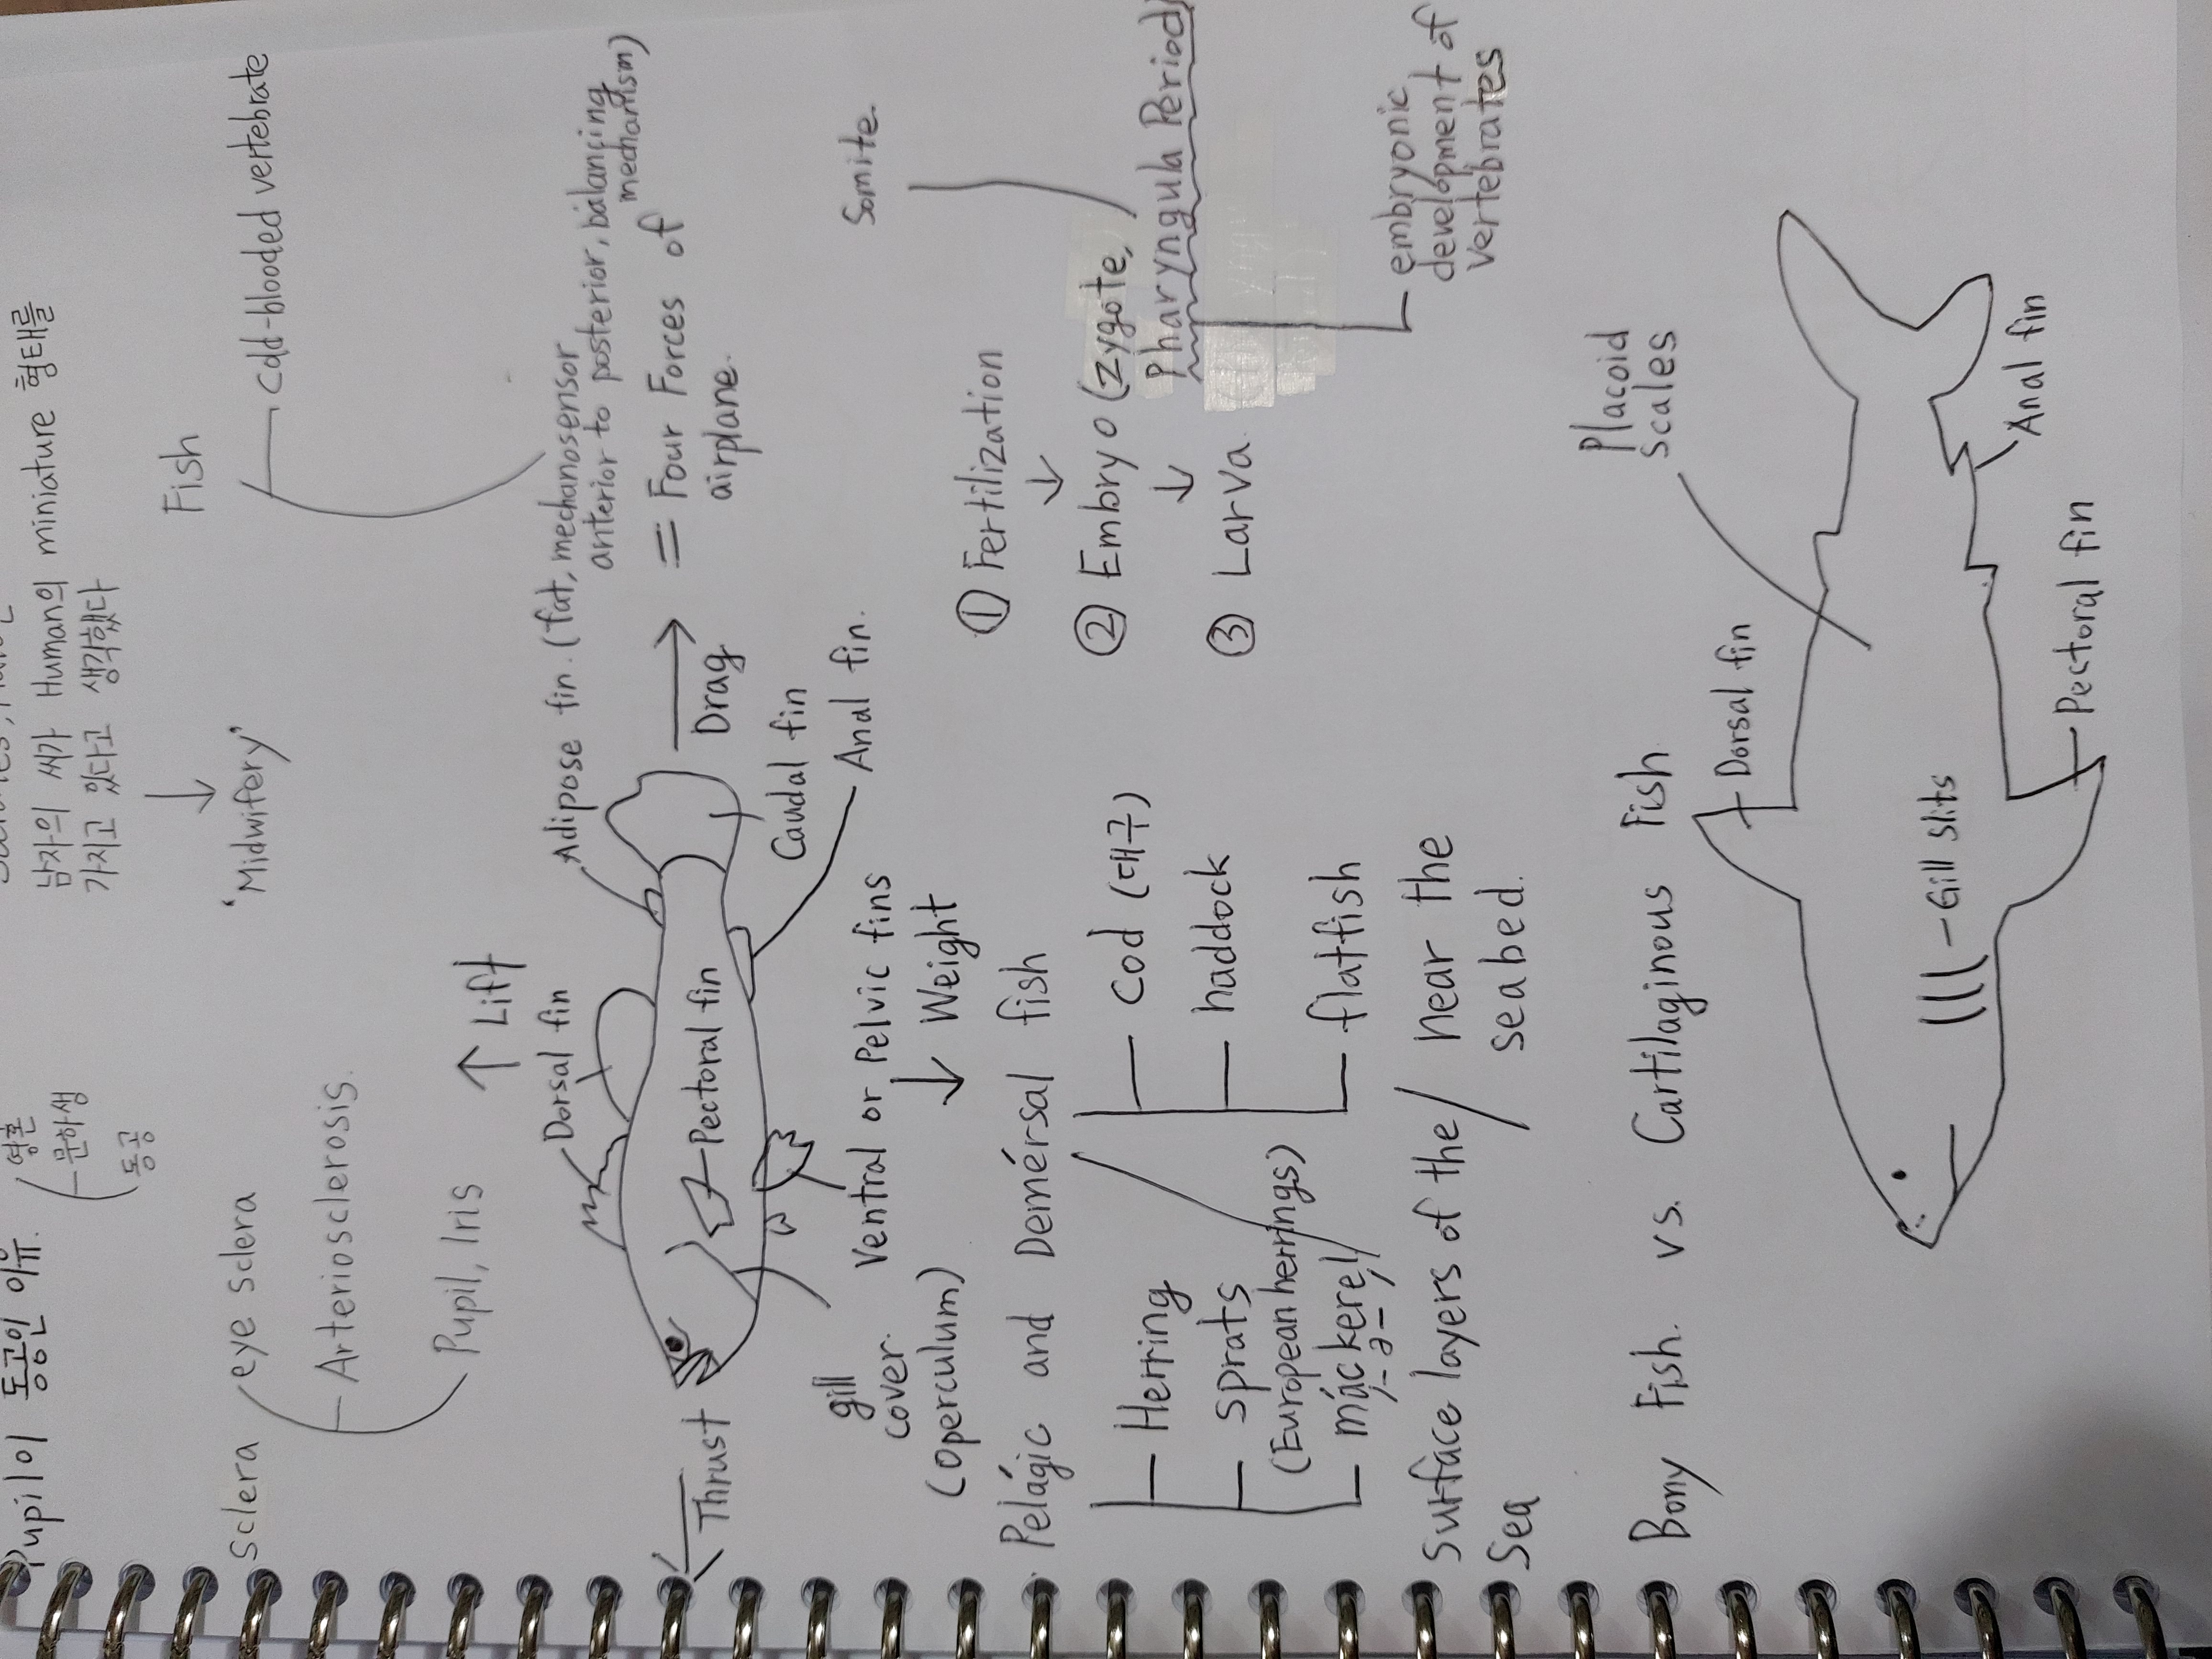 Pupil이 동공인 이유.
영혼
문하생
동공
남자의 씨가 Human의 miniature 형태를
가지고 있다고 생각했다
↓
'Midwifery'
sclera
eye sclera
Arteriosclerosis.
Pupil, Iris
Fish
cold-blooded vertebrate
↑ Lift
Dorsal fin
Adipose fin. (fat, mechanosensor
anterior to posterior, balancing
mechanism)
Pectoral fin
← Thrust
→ Drag
= Four Forces of
airplane.
Caudal fin
Anal fin.
gill
cover.
(operculum)
Ventral or Pelvic fins
↓ Weight
Pelágic and Demérsal fish
Herring
sprats
(European herrings)
máckerel
/-ə-/
Surface layers of the
Sea
Cod (대구)
haddock
flatfish
near the
seabed.
① Fertilization
↓
② Embryo (zygote,
Pharyngula Period)
↓
③ Larva.
Somite.
embryonic
development of
vertebrates
Bony Fish. vs. Cartilaginous Fish
Dorsal fin
Placoid
scales
Gill slits
Pectoral fin
Anal fin